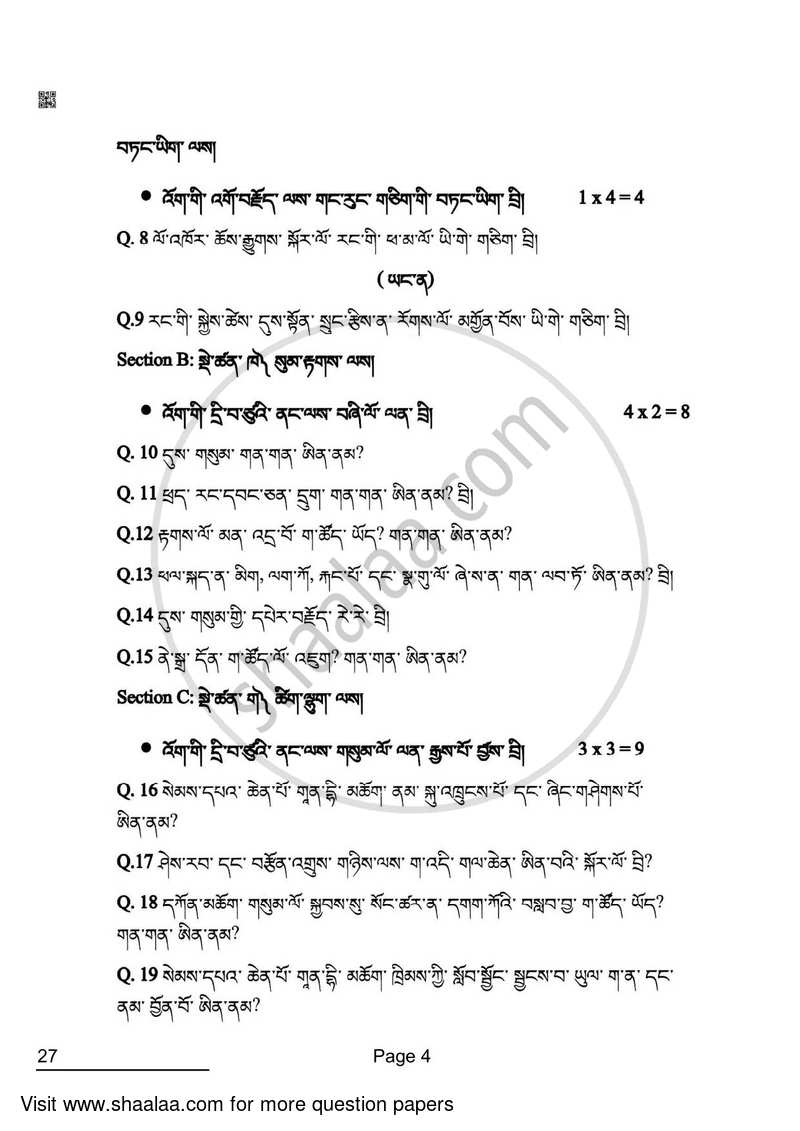 བཏང་ཡིག་ ལས།
● འོག་གི་ འགོ་བརྗོད་ ལས་ གང་རུང་ གཅིག་གི་ བཏང་ཡིག་ བྲི། 1 x 4 = 4
Q. 8 ལོ་འཁོར་ ཆོས་རྒྱུགས་ སྐོར་ལོ་ རང་གི་ ཕ་མ་ལོ་ ཡི་གེ་ གཅིག་ བྲི།
( ཡང་ན)
Q.9 རང་གི་ སྐྱེས་ཚེས་ དུས་སྟོན་ སྲུང་རྩིས་ན་ རོགས་ལོ་ མགྲོན་བོས་ ཡི་གེ་ གཅིག་ བྲི།
Section B: སྡེ་ཚན་ ཁ༽ སུམ་རྟགས་ ལས།
● འོག་གི་ དྲི་བ་ཙུའི་ ནང་ལས་ བཞི་ལོ་ ལན་ བྲི། 4 x 2 = 8
Q. 10 དུས་ གསུམ་ གན་གན་ ཨིན་ནམ?
Q. 11 ཕྲད་ རང་དབང་ཅན་ དྲུག་ གན་གན་ ཨིན་ནམ? བྲི།
Q.12 རྟགས་ལོ་ མན་ འདྲ་བོ་ ག་ཚོད་ ཡོད? གན་གན་ ཨིན་ནམ?
Q.13 ཕལ་སྐད་ན་ མིག, ལག་ཀོ, རྐང་པོ་ དང་ སྣ་གུ་ལོ་ ཞེ་ས་ན་ གན་ ལབ་ཏོ་ ཨིན་ནམ? བྲི།
Q.14 དུས་ གསུམ་གྱི་ དཔེར་བརྗོད་ རེ་རེ་ བྲི།
Q.15 ནེ་སྒྲ་ དོན་ ག་ཚོད་ལོ་ འཇུག? གན་གན་ ཨིན་ནམ?
Section C: སྡེ་ཚན་ ག༽ ཚིག་ལྷུག་ ལས།
● འོག་གི་ དྲི་བ་ཙུའི་ ནང་ལས་ གསུམ་ལོ་ ལན་ རྒྱས་པོ་ བྱས་ བྲི། 3 x 3 = 9
Q. 16 སེམས་དཔའ་ ཆེན་པོ་ གཱན་དྷི་ མཆོག་ ནམ་ སྐུ་འཁྲུངས་པོ་ དང་ ཞིང་གཤེགས་པོ་
ཨིན་ནམ?
Q.17 ཤེས་རབ་ དང་ བརྩོན་འགྲུས་ གཉིས་ལས་ ག་འདི་ གལ་ཆེན་ ཨིན་བའི་ སྐོར་ལོ་ བྲི?
Q. 18 དཀོན་མཆོག་ གསུམ་ལོ་ སྐྱབས་སུ་ སོང་ཚར་ན་ དགག་ཀོའི་ བསླབ་བྱ་ ག་ཚོད་ ཡོད?
གན་གན་ ཨིན་ནམ?
Q. 19 སེམས་དཔའ་ ཆེན་པོ་ གཱན་དྷི་ མཆོག་ ཁྲིམས་ཀྱི་ སློབ་སྦྱོང་ སྦྱངས་བ་ ཡུལ་ ག་ན་ དང་
ནམ་ བྱོན་བོ་ ཨིན་ནམ?
shaalaa.com
27 Page 4
Visit www.shaalaa.com for more question papers